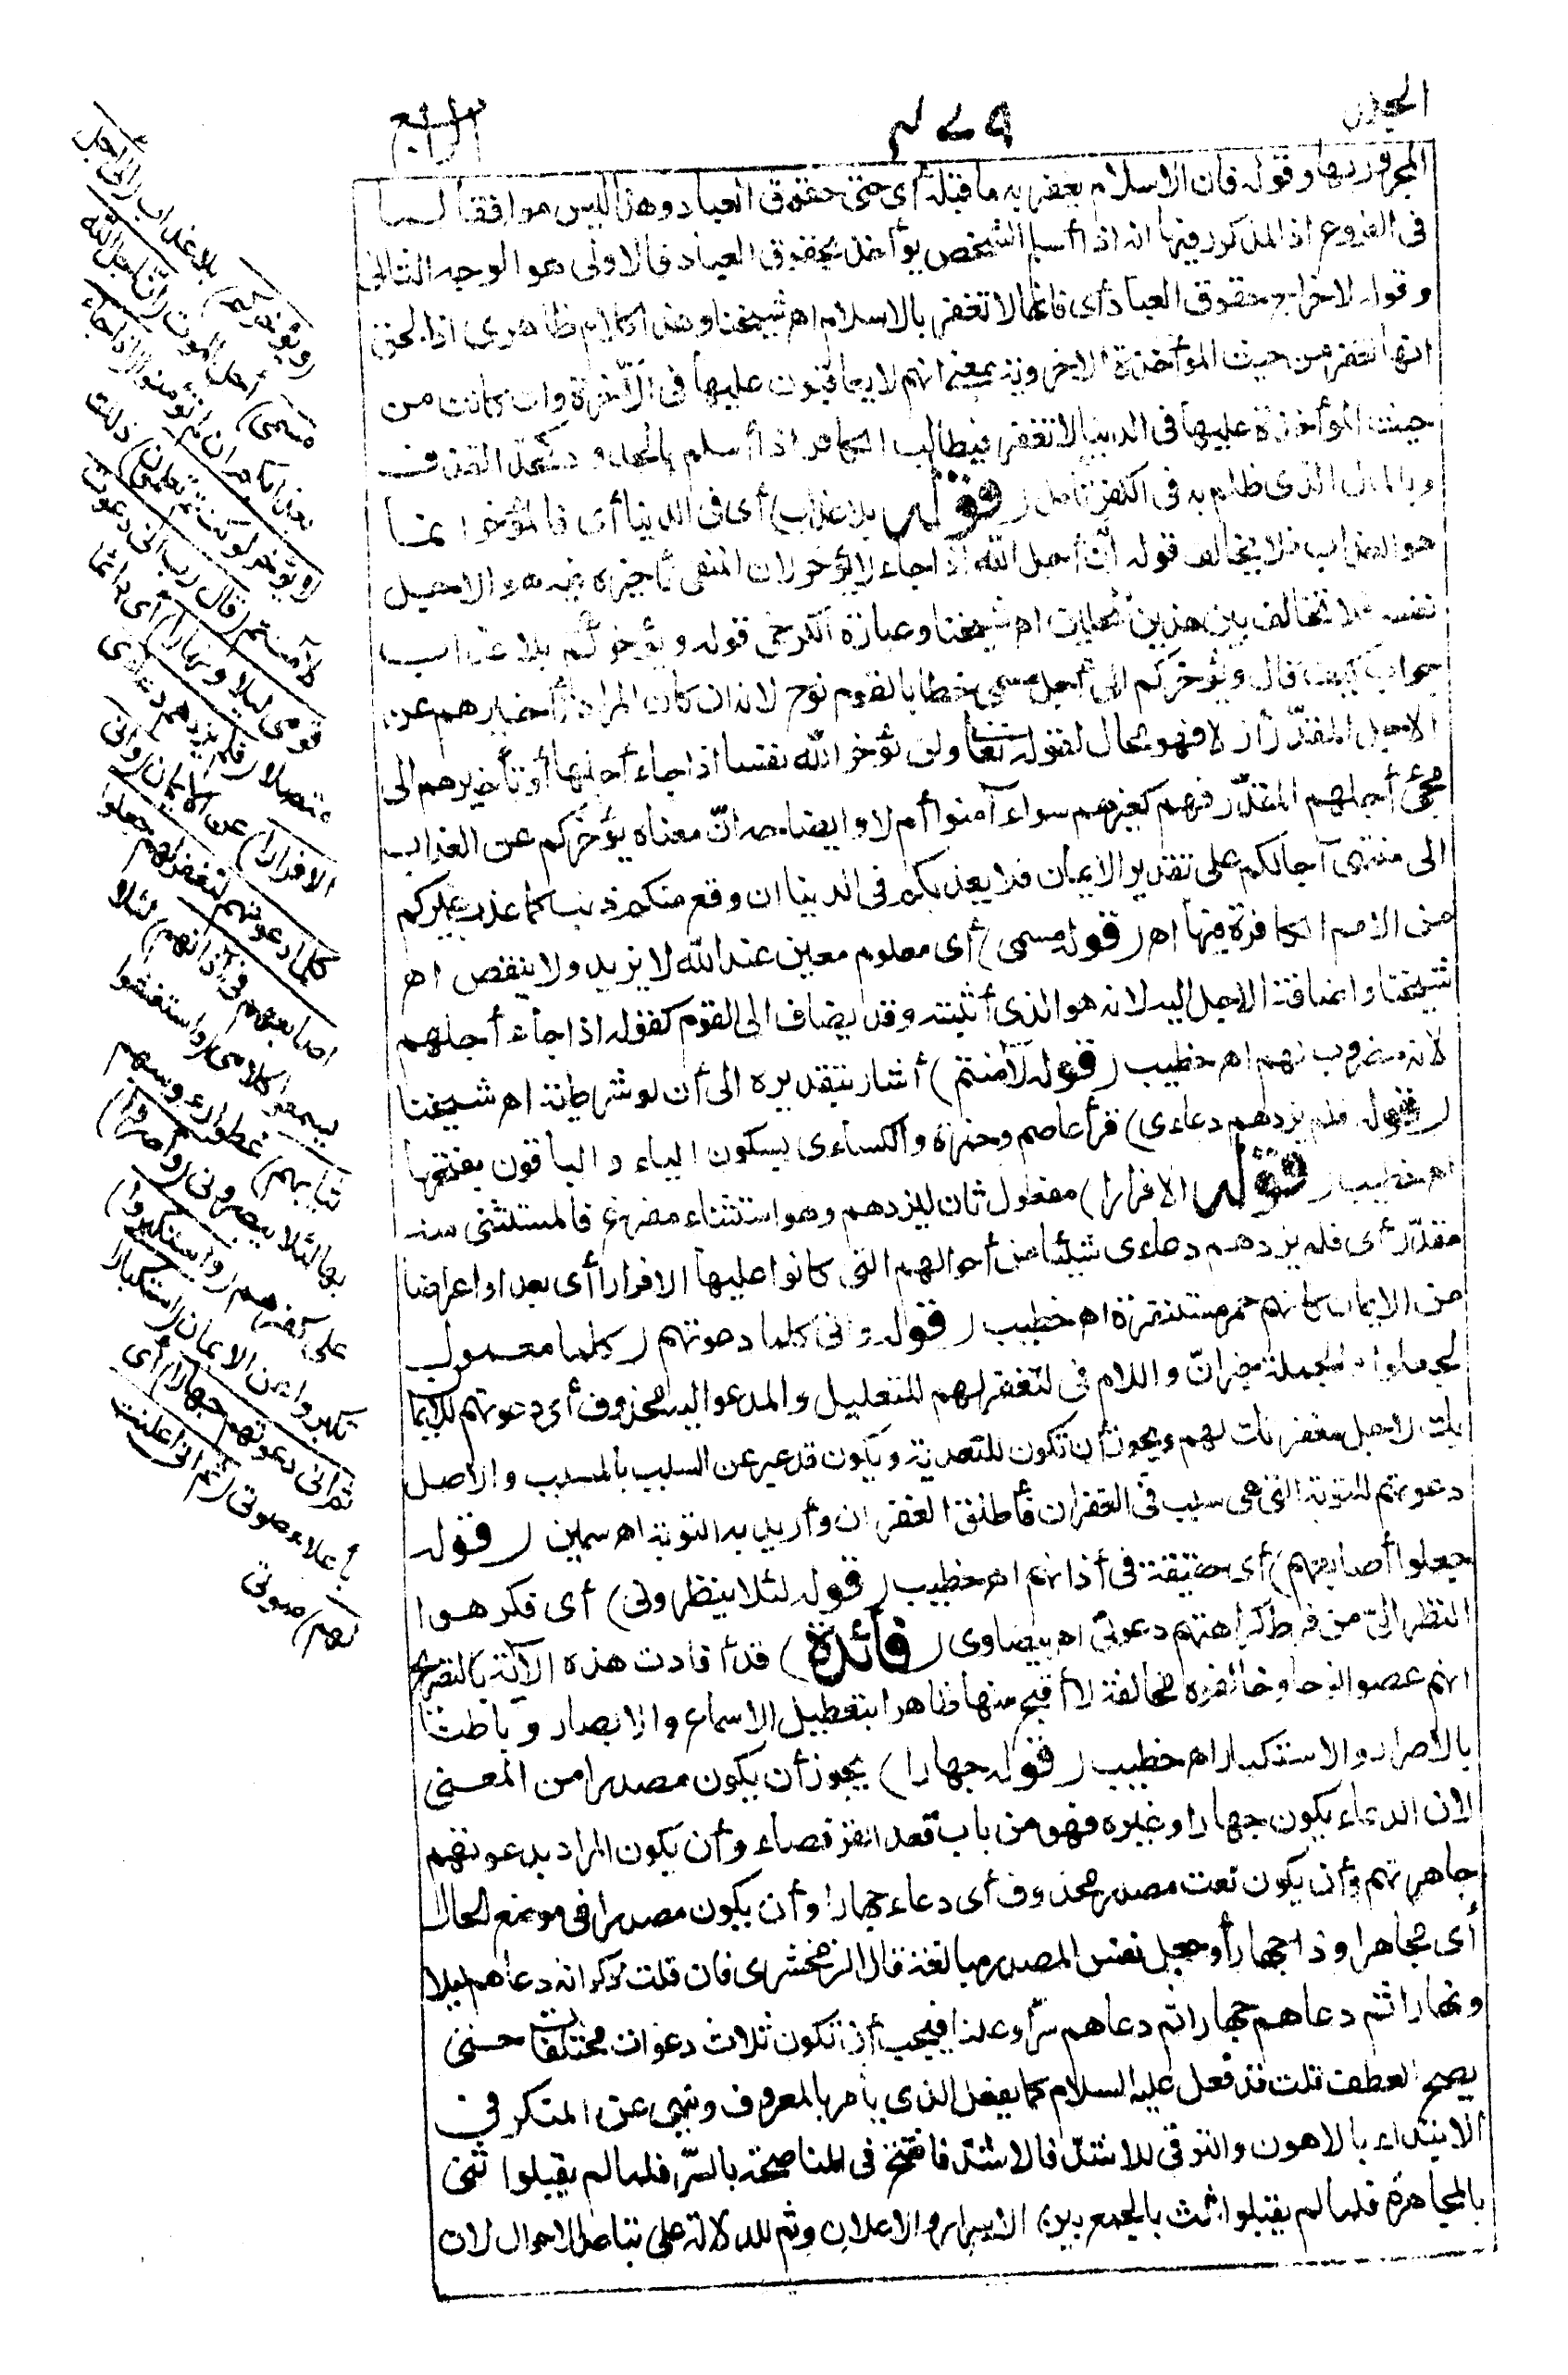 الجزء
الرابع
المجرور بها وقوله فان الاسلام يغفر به ما قبله أى حتى حقوق العباد وهذا ليس موافقا لما
فى الفروع اذ المذكور فيها انه اذا أسلم الشخص يؤاخذ بحقوق العباد فالاولى هو الوجه الثانى
وقوله لاخراج حقوق العباد أى فانها لا تغفر بالاسلام اه شيخنا وهذا كلام ظاهرى اذ الحق
انها تغفر من حيث المؤاخذة الاخروية بمعنى انهم لا يعاقبون عليها فى الآخرة وان كانت من
حيث المؤاخذة عليها فى الدنيا لا تغفر فيطالب الكافر اذا أسلم بالحدود كحد القذف
وبالمال الذى ظلم به فى الكفر تأمل (قوله بلا عذاب) أى فى الدنيا أى فالمؤخر انما
هو العذاب فلا يخالف قوله ان أجل الله اذا جاء لا يؤخر لان المنفى تأخيره فيه هو الاجل
نفسه فلا تخالف بين هذين المحلين اه شيخنا وعبارة الكرخى قوله ويؤخركم بلا عذاب
جواب كيف قال ويؤخركم الى أجل مسمى خطابا لقوم نوح لانه ان كان المراد تأخيرهم عن
الاجل المقدّر أزلا فهو محال لقوله تعالى ولن يؤخر الله نفسا اذا جاء أجلها أو تأخيرهم الى
مجئ أجلهم المقدّر فهم كغيرهم سواء آمنوا أم لا وايضاحه انّ معناه يؤخركم عن العذاب
الى منتهى آجالكم على تقدير الايمان فلا يعذبكم فى الدنيا ان وقع منكم ذنب كما عذب غيركم
من الامم الكافرة فيها اه (قوله مسمى) أى معلوم معين عند الله لا يزيد ولا ينقص اه
شيخنا واضافة الاجل اليه لانه هو الذى أثبته وقد يضاف الى القوم كقوله اذا جاء أجلهم
لانه مضروب لهم اه خطيب (قوله لآمنتم) أشار بتقديره الى أن لو شرطية اه شيخنا
(قوله فلم يزدهم دعاءى) قرأ عاصم وحمزة والكساءى بسكون الياء والباقون بفتحها
اه خطيب (قوله الا فرارا) مفعول ثان ليزدهم وهو استثناء مفرغ فالمستثنى منه
مقدّر أى فلم يزدهم دعاءى شيئا من أحوالهم التى كانوا عليها الا فرارا أى بعدا واعراضا
من الايمان كانهم حمر مستنفرة اه خطيب (قوله وانى كلما دعوتهم) كلما معمول
لجعلوا والجملة خبر انّ واللام فى لتغفر لهم للتعليل والمدعو اليه محذوف أى دعوتهم للايما
بك لاجل مغفرتك لهم ويجوز أن تكون للتعدية ويكون قد عبر عن السبب بالمسبب والاصل
دعوتهم للتوبة التى هى سبب فى الغفران فأطلق الغفران وأريد به التوبة اه سمين (قوله
جعلوا أصابعهم) أى حقيقة فى أذانهم اه خطيب (قوله لئلا ينظرونى) أى فكرهوا
النظر الىّ من فرط كراهتهم دعوتى اه بيضاوى (فائدة) قد أفادت هذه الآية بالتصريح
انهم عصوا نوحا وخالفوه مخالفة لا أقبح منها ظاهرا بتعطيل الاسماع والابصار وباطنا
بالاصرار والاستكبار اه خطيب (قوله جهارا) يجوز أن يكون مصدرا من المعنى
لان الدعاء يكون جهارا وغيره فهو من باب قعد القرفصاء وأن يكون المراد بدعوتهم
جاهرتهم وأن يكون نعت مصدر محذوف أى دعاء جهارا وأن يكون مصدرا فى موضع الحال
أى مجاهرا وذا جهار أو جعل نفس المصدر مبالغة قال الزمخشرى فان قلت ذكر انه دعاهم ليلا
ونهارا ثم دعاهم جهارا ثم دعاهم سرّا وعلنا فيجب أن تكون ثلاث دعوات مختلفات حتى
يصح العطف قلت قد فعل عليه السلام كما يفعل الذى يأمر بالمعروف وينهى عن المنكر فى
الابتداء بالاهون والترقى للاشدّ فالاشدّ فافتتح فى المناصحة بالسرّ فلما لم يقبلوا ثنى
بالمجاهرة فلما لم يقبلوا ثلث بالجمع بين الاسرار والاعلان وثم للدلالة على تباعد الاحوال لان
(ويؤخركم) بلا عذاب (الى أجل
مسمى) أجل الموت (انّ أجل الله)
بعذابكم ان لم تؤمنوا (اذا جاء
لا يؤخر لو كنتم تعلمون) ذلك
لآمنتم (قال رب انى دعوت
قومى ليلا ونهارا) أى دائما
متصلا (فلم يزدهم دعاءى
الا فرارا) عن الايمان (وانى
كلما دعوتهم لتغفر لهم جعلوا
اصابعهم فى آذانهم) لئلا
يسمعوا كلامى (واستغشوا
ثيابهم) غطوا رءوسهم
بها لئلا ينظرونى (وأصروا)
على كفرهم (واستكبروا)
تكبروا عن الايمان (استكبارا
ثم انى دعوتهم جهارا) أى
بأعلاء صوتى (ثم انى اعلنت
لهم) صوتى